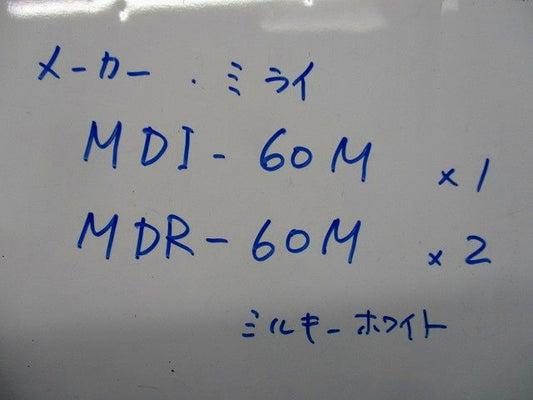 メーカー・ミライ
MDI-60M ×1
MDR-60M ×2
ミルキーホワイト